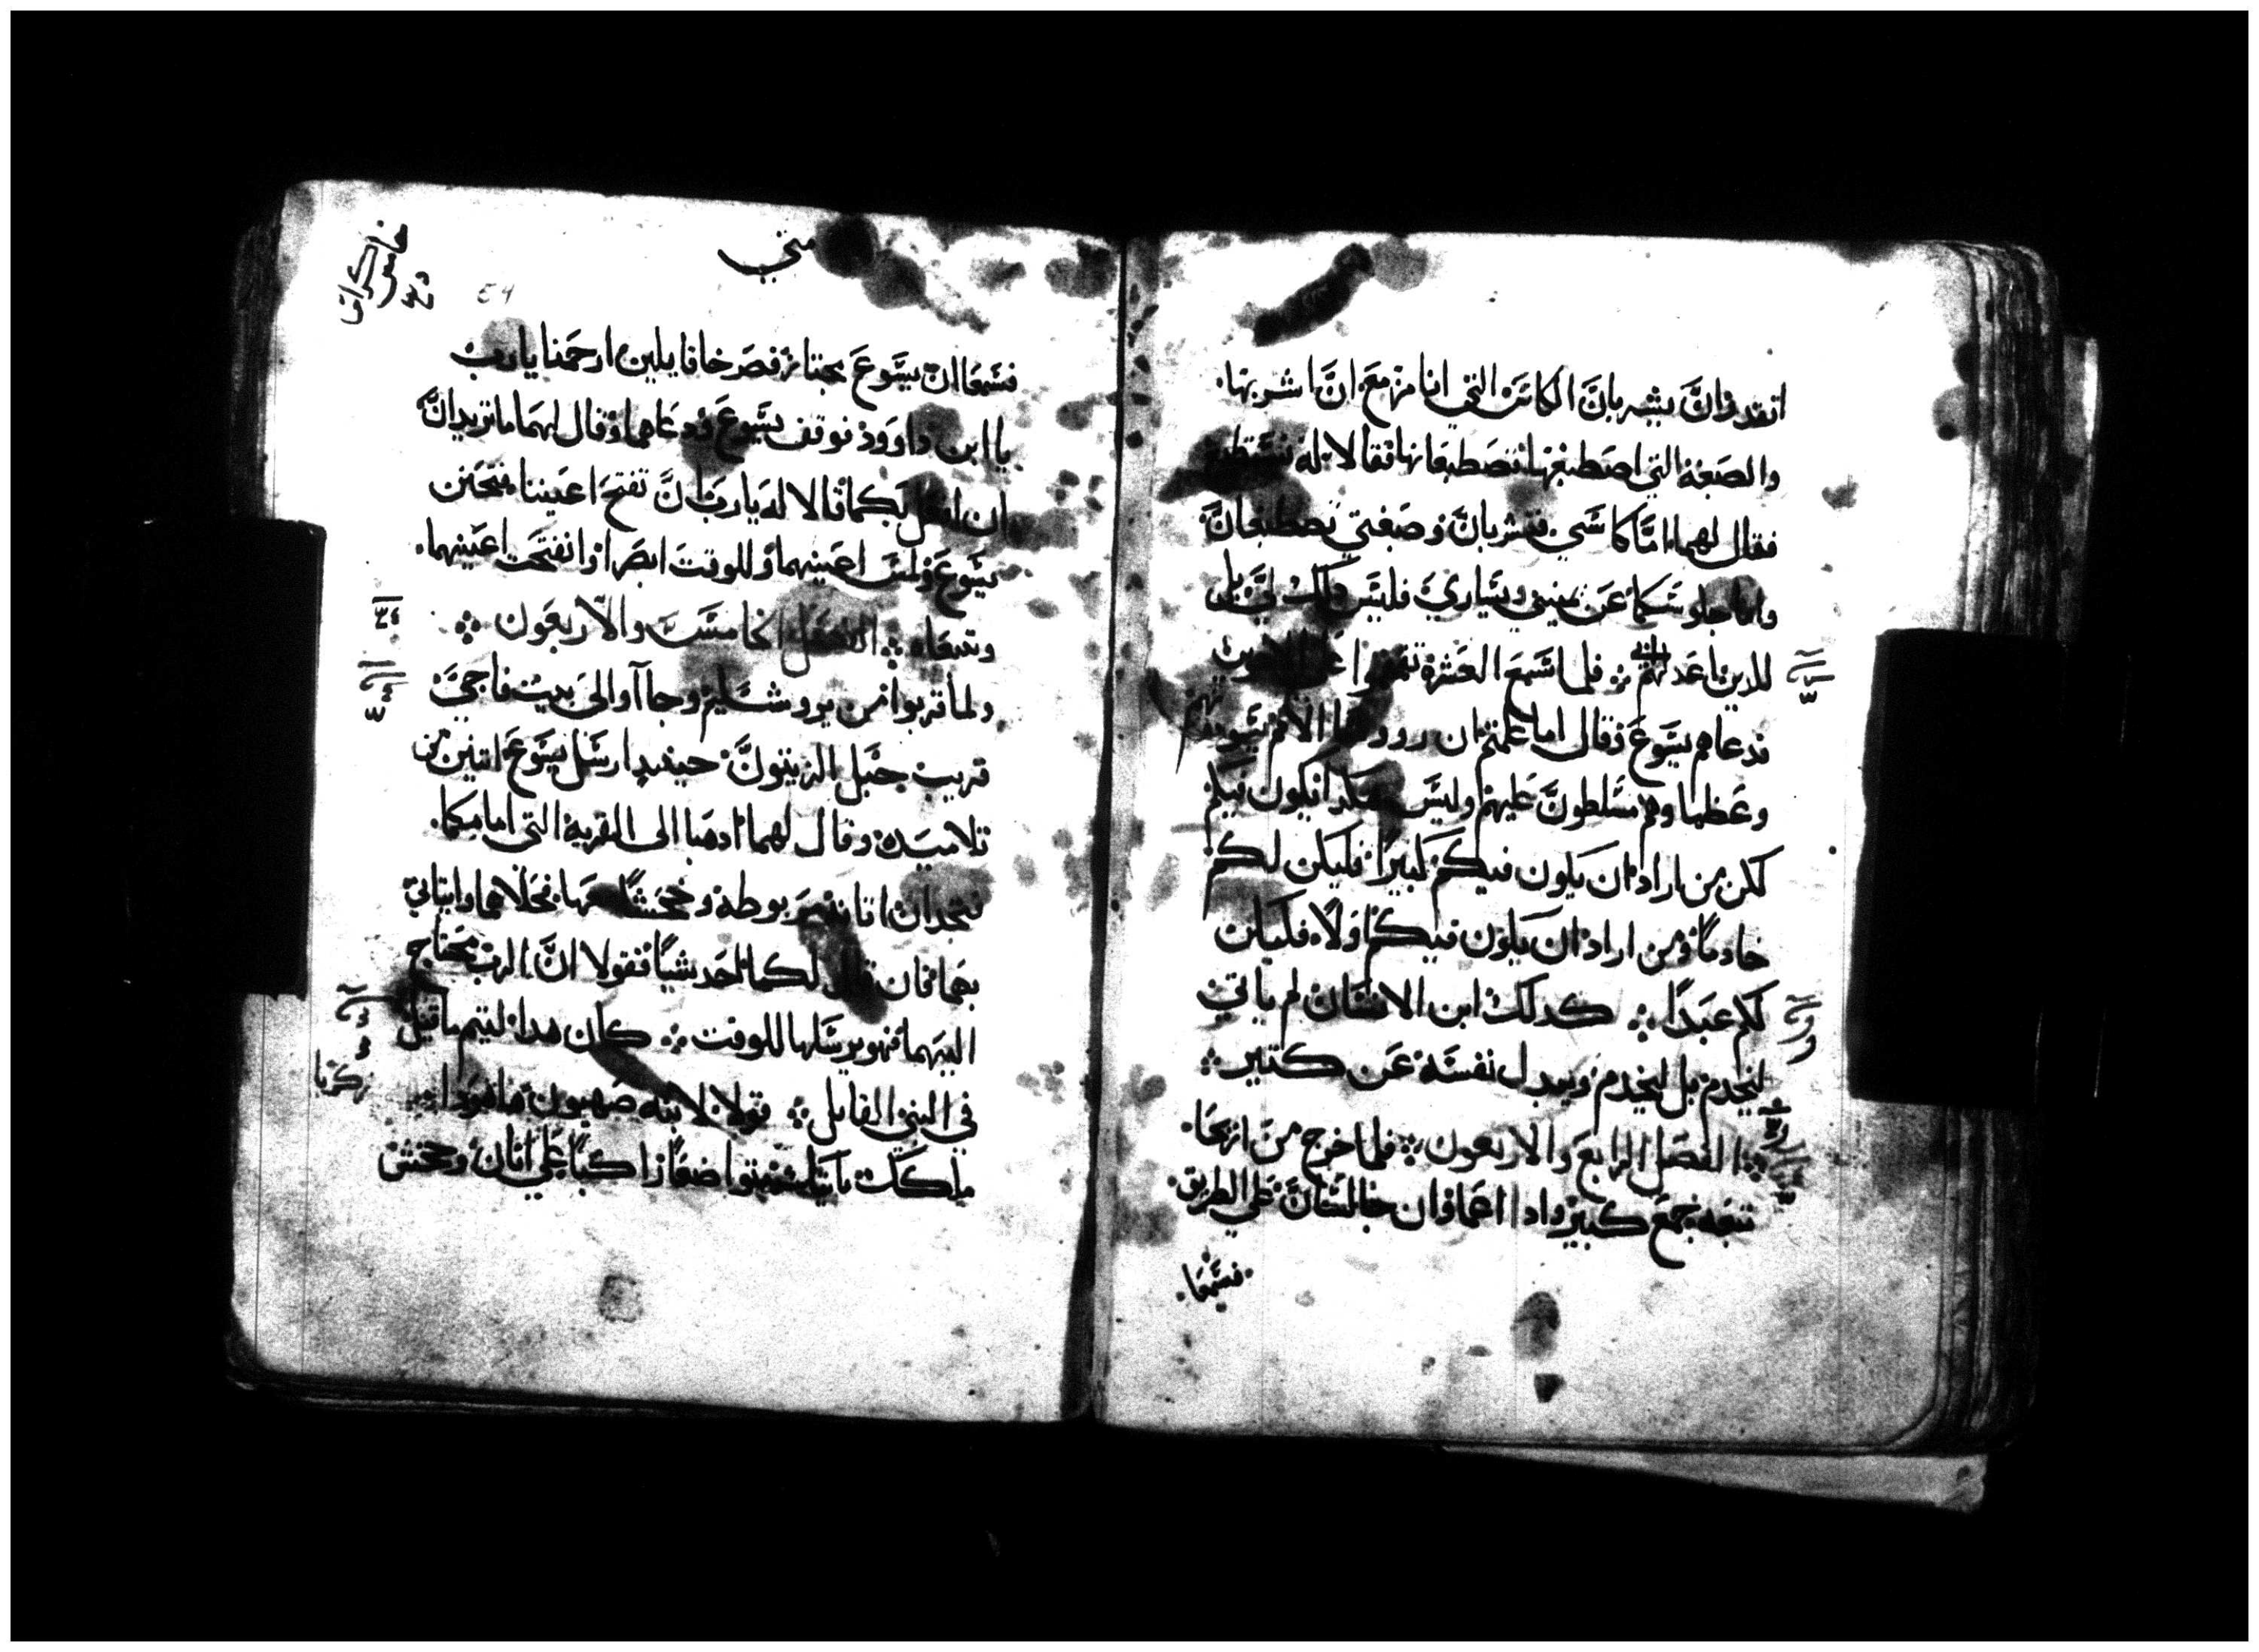 اتقدران يشربان الكاس التي انا مزمع ان اشربها.
والصبغة التي اصطبغها تصطبغانها فقالا له نستطيع
فقال لهما اما كاسي فتشربان وصبغتي تصطبغان
واما جلوسكما عن يميني ويساري فليس دلك لي بل
للدين اعد لهم ܀ فلما سمع العشرة تقمقموا على الاخوين
فدعاهم يسوع وقال اما علمتم ان روسا الامم يسودونهم
وعظماوهم مسلطون عليهم وليس هكدا يكون فيكم
لكن من اراد ان يكون فيكم كبيرا فليكن لكم
خادما ومن اراد ان يكون فيكم اولا فليكن
لكم عبدا ܀ كدلك ابن الانسان لم ياتي
ليخدم بل ليخدم ويبدل نفسه عن كتير ܀
܀ الفصل الرابع والاربعون ܀ فلما خرج من اريحا.
تبعه جمع كبير وادا اعماوان جالسان على الطريق.
فسمعا.
متي
فسمعا ان يسوع مجتاز فصرخا قايلين ارحمنا يارب
يا ابن داوود فوقف يسوع ودعاهما وقال لهما ما تريدان
ان افعل بكما قالا له يارب ان تفتح اعيننا فتحنن
يسوع ولمس اعينهما وللوقت ابصرا وانفتحت اعينهما.
وتبعاه ܀ الفصل الخامس والاربعون ܀
ولما قربوا من يروشليم وجاآوا الى بيت فاجي
قريب جبل الزيتون حينيد ارسل يسوع اتنين من
تلاميده وقال لهما ادهبا الى القرية التي امامكما.
فتجدان اتانا مربوطة وجحشا معها فحلاهما وايتاني
بهما فان قال لكما احد شيا فقولا ان الرب محتاج
اليهما فهو يرسلها للوقت ܀ كان هدا ليتم ما قيل
في النبي القايل ܀ قولا لابنه صهيون هاهودا
ملكك ياتيك متواضعا راكبا على اتان وجحش
زكريا